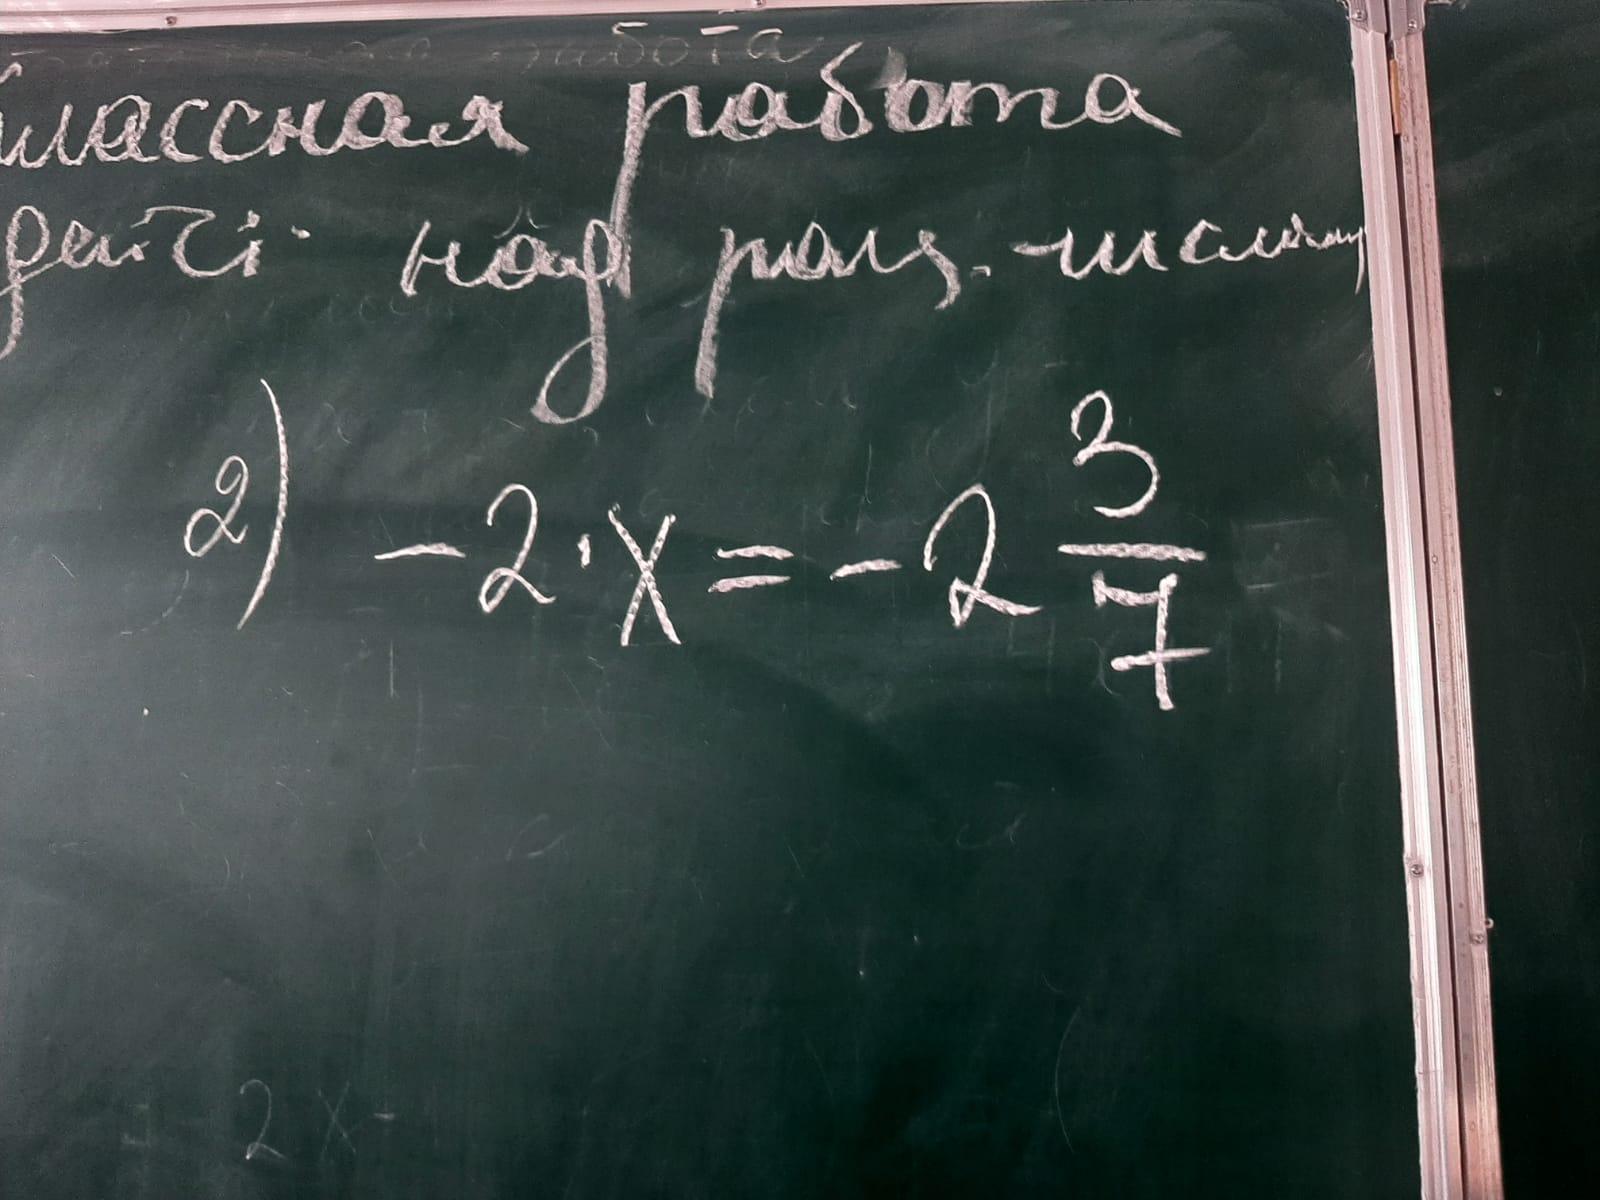 Классная работа
дейст. над рац. числами
2) -2·x = -2 3/7
2 x -